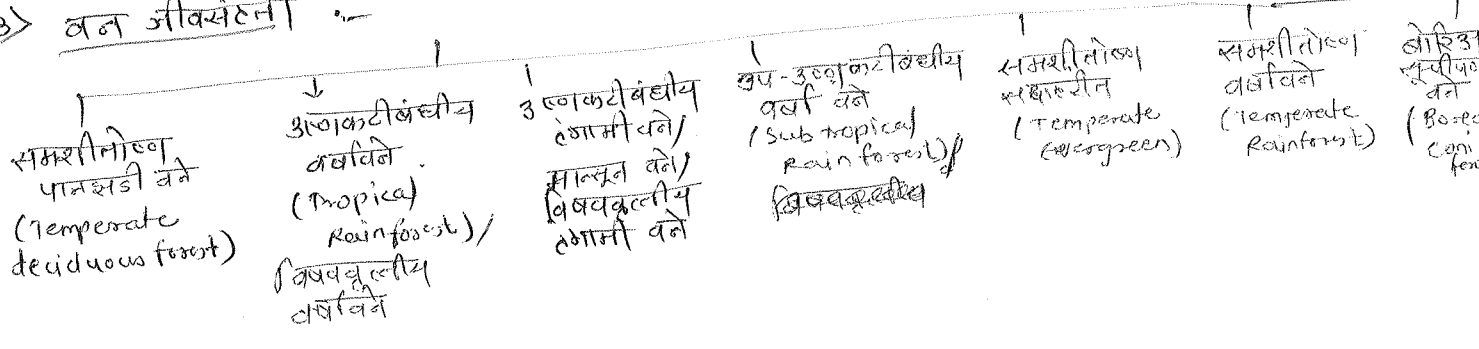 3) वन जीवसंहती :-
समशीतोष्ण
पानझडी वने
(Temperate
deciduous forest)
उष्णकटीबंधीय
वर्षावने
(Tropical
Rainforest)/
विषववृत्तीय
वर्षावने
उष्णकटीबंधीय
हंगामी वने/
मान्सून वने/
विषववृत्तीय
हंगामी वने
उप-उष्णकटीबंधीय
वर्षा वने
(Sub tropical
Rainforest)/
समशीतोष्ण
सदाहरीत
(Temperate
Evergreen)
समशीतोष्ण
वर्षावने
(Temperate
Rainforest)
वने